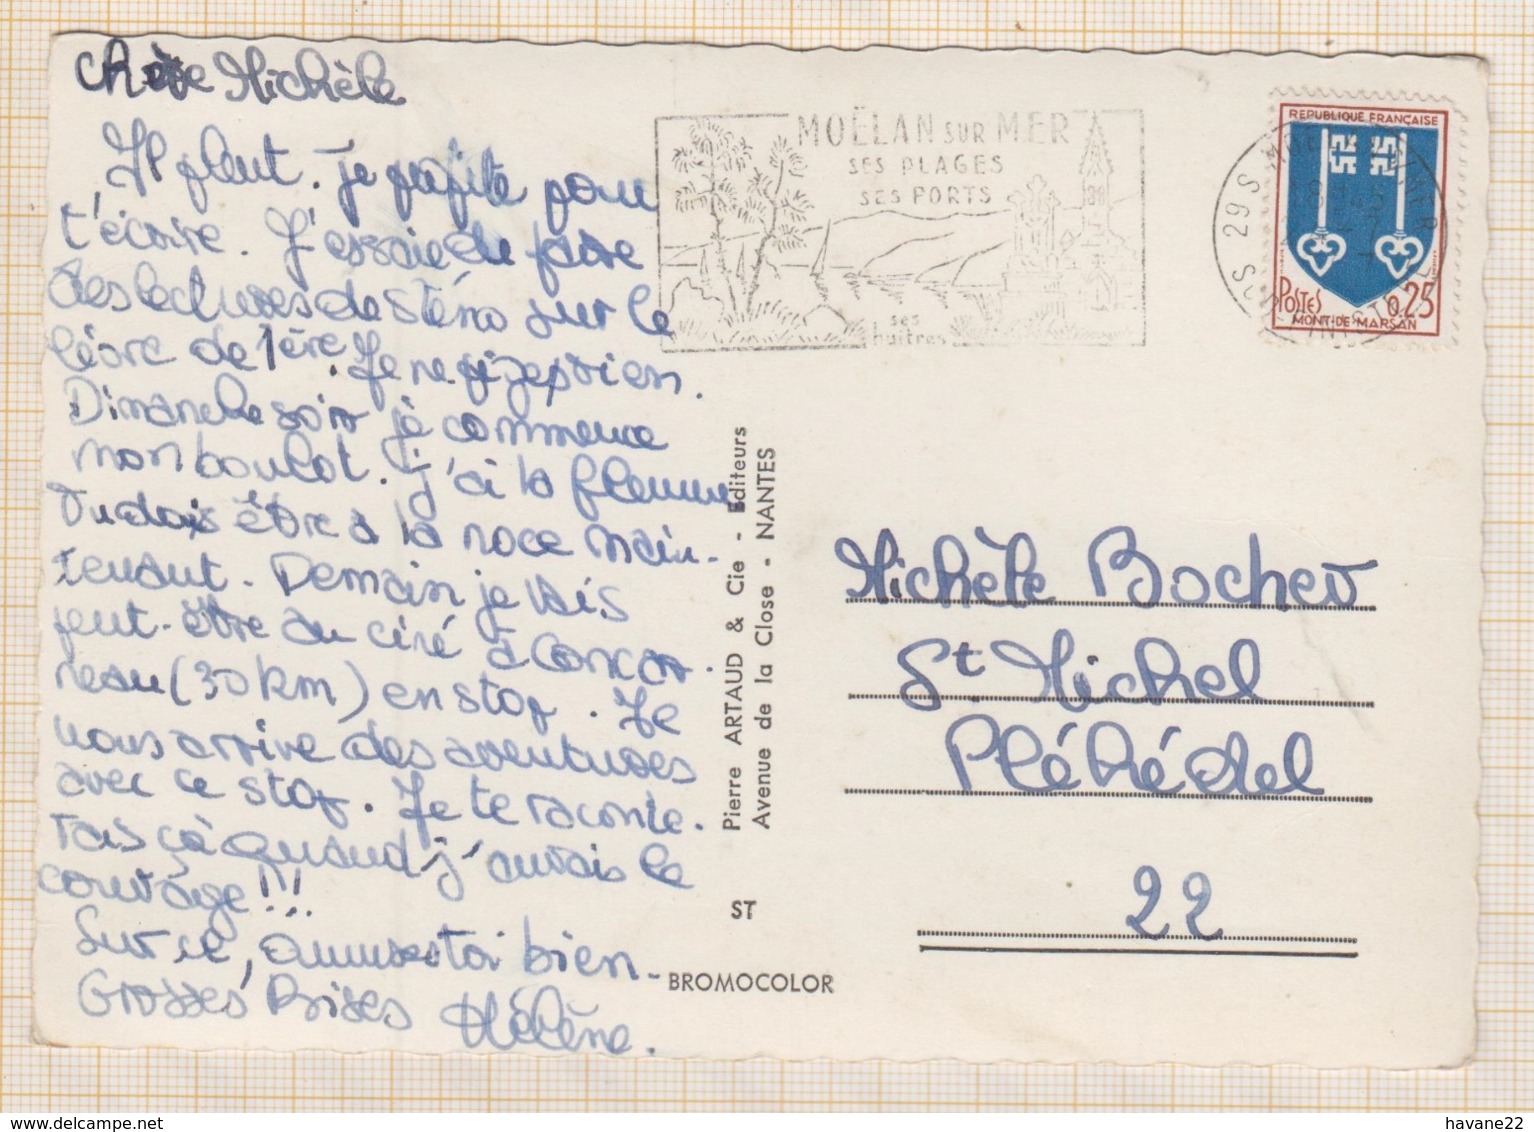 Chère Michèle
Il pleut. Je profite pour
t'écrire. J'essaie de faire
des lectures de sténo sur le
livre de 1ère. Je ne pige rien.
Dimanche soir je commence
mon boulot. j'ai la flemme
Tu dois être à la noce main-
tenant. Demain je vais
peut-être au ciné à Concar-
neau (30 km) en stop. Il
nous arrive des aventures
avec ce stop. Je te raconte-
rais çà quand j'aurais le
courage !!!
Sur ce, amuse toi bien-
Grosses Bises Hélène.
MOËLAN SUR MER
SES PLAGES
SES PORTS
ses
huîtres
29S
REPUBLIQUE FRANÇAISE
POSTES 0,25
MONT-DE-MARSAN
Pierre ARTAUD & Cie - Editeurs
Avenue de la Close - NANTES
ST
BROMOCOLOR
Michèle Bocher
St Michel
Pléhédel
22
havane22